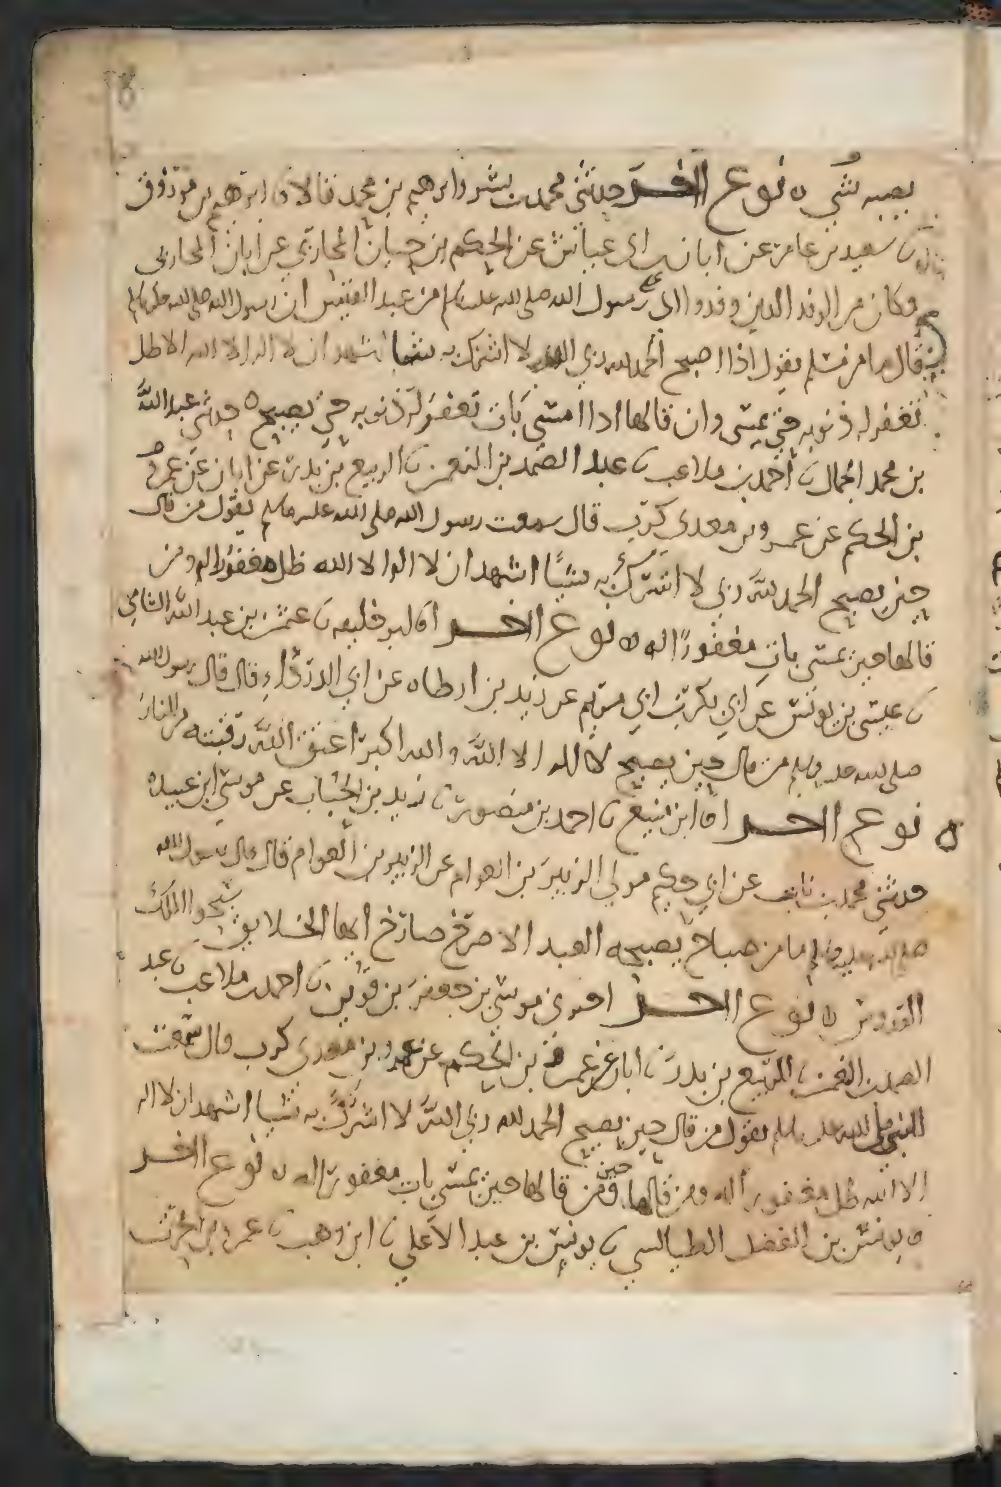 يصبه شي ه نوع اخر حدثني محمد بن بشر وابرهيم بن محمد قالا ثنا ابرهيم بن مرزوق
ثنا سعيد بن عامر عن ابان بن ابي عياش عن الحكم بن حيان المحاربي عن ابان المحاربي
وكان من الوفد الذين وفدوا الى رسول الله صلى الله عليه وسلم من عبد القيس ان رسول الله صلى الله عليه وسلم
قال ما من مسلم يقول اذا اصبح الحمد لله ربي الله لا اشرك به شيا اشهد ان لا اله الا الله الا ظل
تغفر له ذنوبه حتى يمسي وان قالها اذا امسى بات تغفر له ذنوبه حتى يصبح ه حدثني عبد الله
بن محمد الجمال ثنا احمد بن ملاعب ثنا عبد الصمد بن النعمن ثنا الربيع بن بدر عن ابان عن عمرو
بن الحكم عن عمرو بن معدي كرب قال سمعت رسول الله صلى الله عليه وسلم يقول من قال
حين يصبح الحمد لله ربي لا اشرك به شيئا اشهد ان لا اله الا الله ظل مغفورا له ومن
قالها حين يمسي بات مغفورا له ه نوع اخر انا ابو خليفه ثنا عثمن بن عبد الله الشامي
ثنا عيسى بن يونس عن ابي بكر بن ابي مريم عن زيد بن ارطاه عن ابي الدرداء قال قال رسول الله
صلى الله عليه وسلم من قال حين يصبح لا اله الا الله والله اكبر اعتق الله رقبته من النار
ه نوع اخر انا ابن منيع ثنا احمد بن منصور ثنا زيد بن الحباب عن موسى ابن عبيدة
حدثني محمد بن ثابت عن ابي حكيم مولى الزبير بن العوام عن الزبير بن العوام قال قال رسول الله
صلى الله عليه وسلم ما من صباح يصبحه العبد الا صرخ صارخ ايها الخلايق سبحوا الملك
القدوس ه نوع اخر اخبرني موسى بن جعفر بن قرين ثنا احمد بن ملاعب ثنا عبد
الصمد بن النعمن ثنا الربيع بن بدر ثنا ابان عن عمرو بن الحكم عن عمرو بن معدي كرب قال سمعت
النبي صلى الله عليه وسلم يقول من قال حين يصبح الحمد لله ربي الله لا اشرك به شيا اشهد ان لا اله
الا الله ظل مغفورا له ومن قالها ومن قالها حين يمسي بات مغفورا له ه نوع اخر
يونس بن الفضل الطيالسي ثنا يونس بن عبد الاعلى ثنا ابن وهب ثنا عمرو بن الحرث